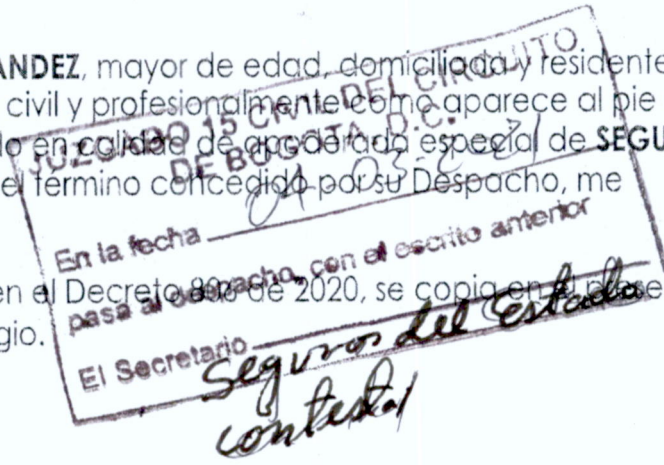 ANDEZ, mayor de edad, domiciliada y residente
civil y profesionalmente como aparece al pie
do en calidad de apoderada especial de SEGU
el término concedido por su Despacho, me
en el Decreto 806 de 2020, se copia en el
gio.
JUZGADO 15 CIVIL DEL CIRCUITO
DE BOGOTA D.C.
En la fecha
pasa al despacho, con el escrito anterior
El Secretario
Seguros del Estado
contesta